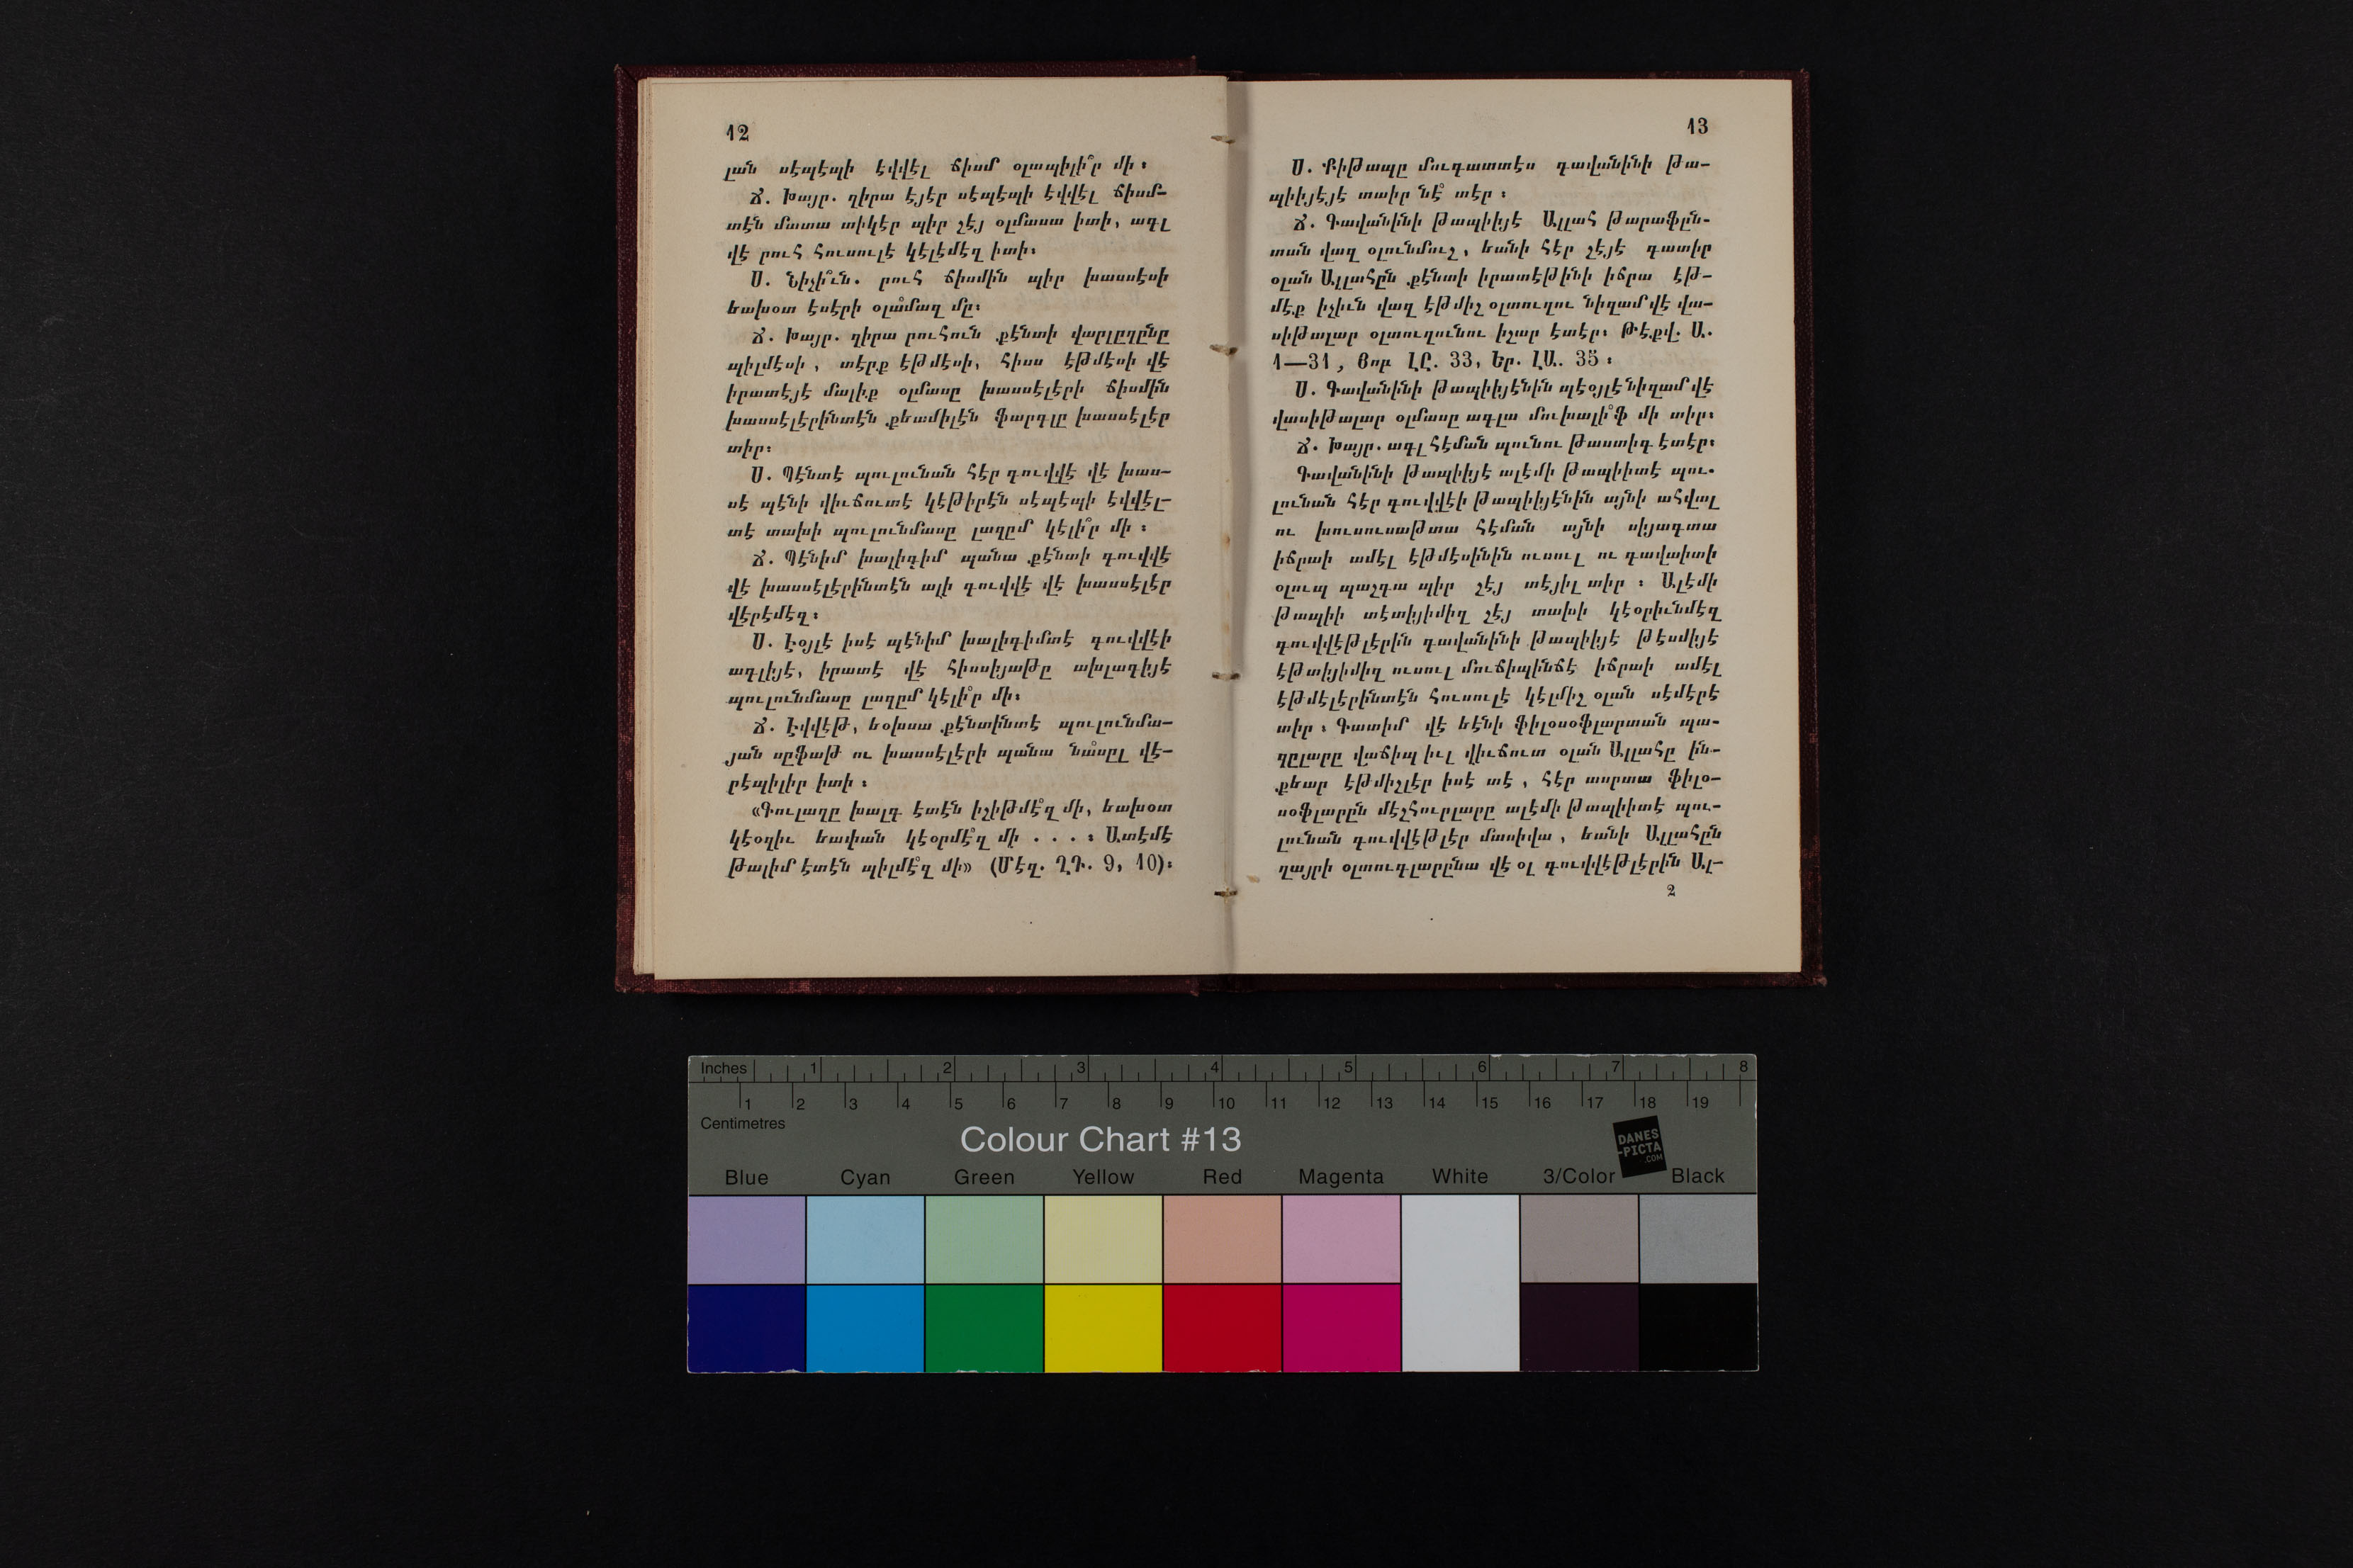 12
լան սէպէպի էվվէլ ճիսմ օլապիլի՞ր մի ։
Ճ. Խայր. զիրա էյէր սէպէպի էվվէլ ճիսմ-
տէն մատա տիկէր պիր շէյ օլմասա իտի, ագլ
վէ րուհ հուսուլէ կէլէմէզ իտի։
Ս. Նիչի՞ւն. րուհ ճիսմին պիր խասսէսի
եախօտ էսէրի օլա՞մազ մը։
Ճ. Խայր. զիրա րուհուն քէնտի վարլըղընը
պիլմէսի, տէրք էթմէսի, հիսս էթմէսի վէ
իրատէյէ մալիք օլմասը խասսէլէրի ճիսմին
խասսէլէրինտէն քեամիլէն ֆարգլը խասսէլէր
տիր։
Ս. Պէնտէ պուլունան հէր գուվվէ վէ խաս-
սէ պէնի վիւճուտէ կէթիրէն սէպէպի էվվէլ-
տէ տախի պուլունմասը լազըմ կէլի՞ր մի ։
Ճ. Պէնիմ խալիգիմ պանա քէնտի գուվվէ
վէ խասսէլէրինտէն ալի գուվվէ վէ խասսէլէր
վէրէմէզ։
Ս. Էօյլէ իսէ պէնիմ խալիգիմտէ գուվվէի
ագլիյէ, իրատէ վէ հիսսիյաթը ախլագիյէ
պուլունմասը լազըմ կէլի՞ր մի։
Ճ. Էվվէթ, եօխսա քէնտինտէ պուլունմա-
յան սըֆաթ ու խասսէլէրի պանա նա՞սըլ վէ-
րէպիլիր իտի ։
«Գուլաղը խալգ էտէն իշիթմէ՞զ մի, եախօտ
կէօզիւ եափան կէօրմէ՞զ մի . . . ։ Ատէմէ
թալիմ էտէն պիլմէ՞զ մի» (Մէզ. ՂԴ. 9, 10)։
13
Ս. Քիթապը մուգատտէս գավանինի թա-
պիիյէյէ տաիր նէ՞ տէր ։
Ճ. Գավանինի թապիիյէ Ալլահ թարաֆըն-
տան վազ օլունմուշ, եանի հէր շէյէ գատիր
օլան Ալլահըն քէնտի իրատէթինի իճրա էթ-
մէք իչիւն վազ էթմիշ օլտուղու նիզամ վէ վա-
սիթալար օլտուղունու իշար էտէր։ Թէքվ. Ա.
1—31, Յոբ ԼԸ. 33, Եր. ԼԱ. 35 ։
Ս. Գավանինի թապիիյէնին պէօյլէ նիզամ վէ
վասիթալար օլմասը ագլա մուխալի՞ֆ մի տիր։
Ճ. Խայր. ագլ հէման պունու թաստիգ էտէր։
Գավանինի թապիիյէ ալէմի թապիիտէ պու-
լունան հէր գուվվէի թապիիյէնին այնի ահվալ
ու խուսուսաթտա հէման այնի սիյագտա
իճրաի ամէլ էթմէսինին ուսուլ ու գավաիտի
օլուպ պաշգա պիր շէյ տէյիլ տիր ։ Ալէմի
թապիի տէտիյիմիզ շէյ տախի կէօրիւնմէզ
գուվվէթլէրին գավանինի թապիիյէ թէսմիյէ
էթտիյիմիզ ուսուլ մուճիպինճէ իճրաի ամէլ
էթմէլէրինտէն հուսուլէ կէլմիշ օլան սէմէրէ
տիր ։ Գատիմ վէ եէնի ֆիլօսօֆլարտան պա-
զըլարը վաճիպ իւլ վիւճուտ օլան Ալլահը ին-
քեար էթմիշլէր իսէ տէ, հէր ասրտա ֆիլօ-
սօֆլարըն մէշհուրլարը ալէմի թապիիտէ պու-
լունան գուվվէթլէր մասիվա, եանի Ալլահըն
ղայրի օլտուգլարընա վէ օլ գուվվէթլէրին Ալ-
2
Inches 1 2 3 4 5 6 7 8
1 2 3 4 5 6 7 8 9 10 11 12 13 14 15 16 17 18 19
Centimetres
Colour Chart #13
DANES
-PICTA
.COM
Blue Cyan Green Yellow Red Magenta White 3/Color Black